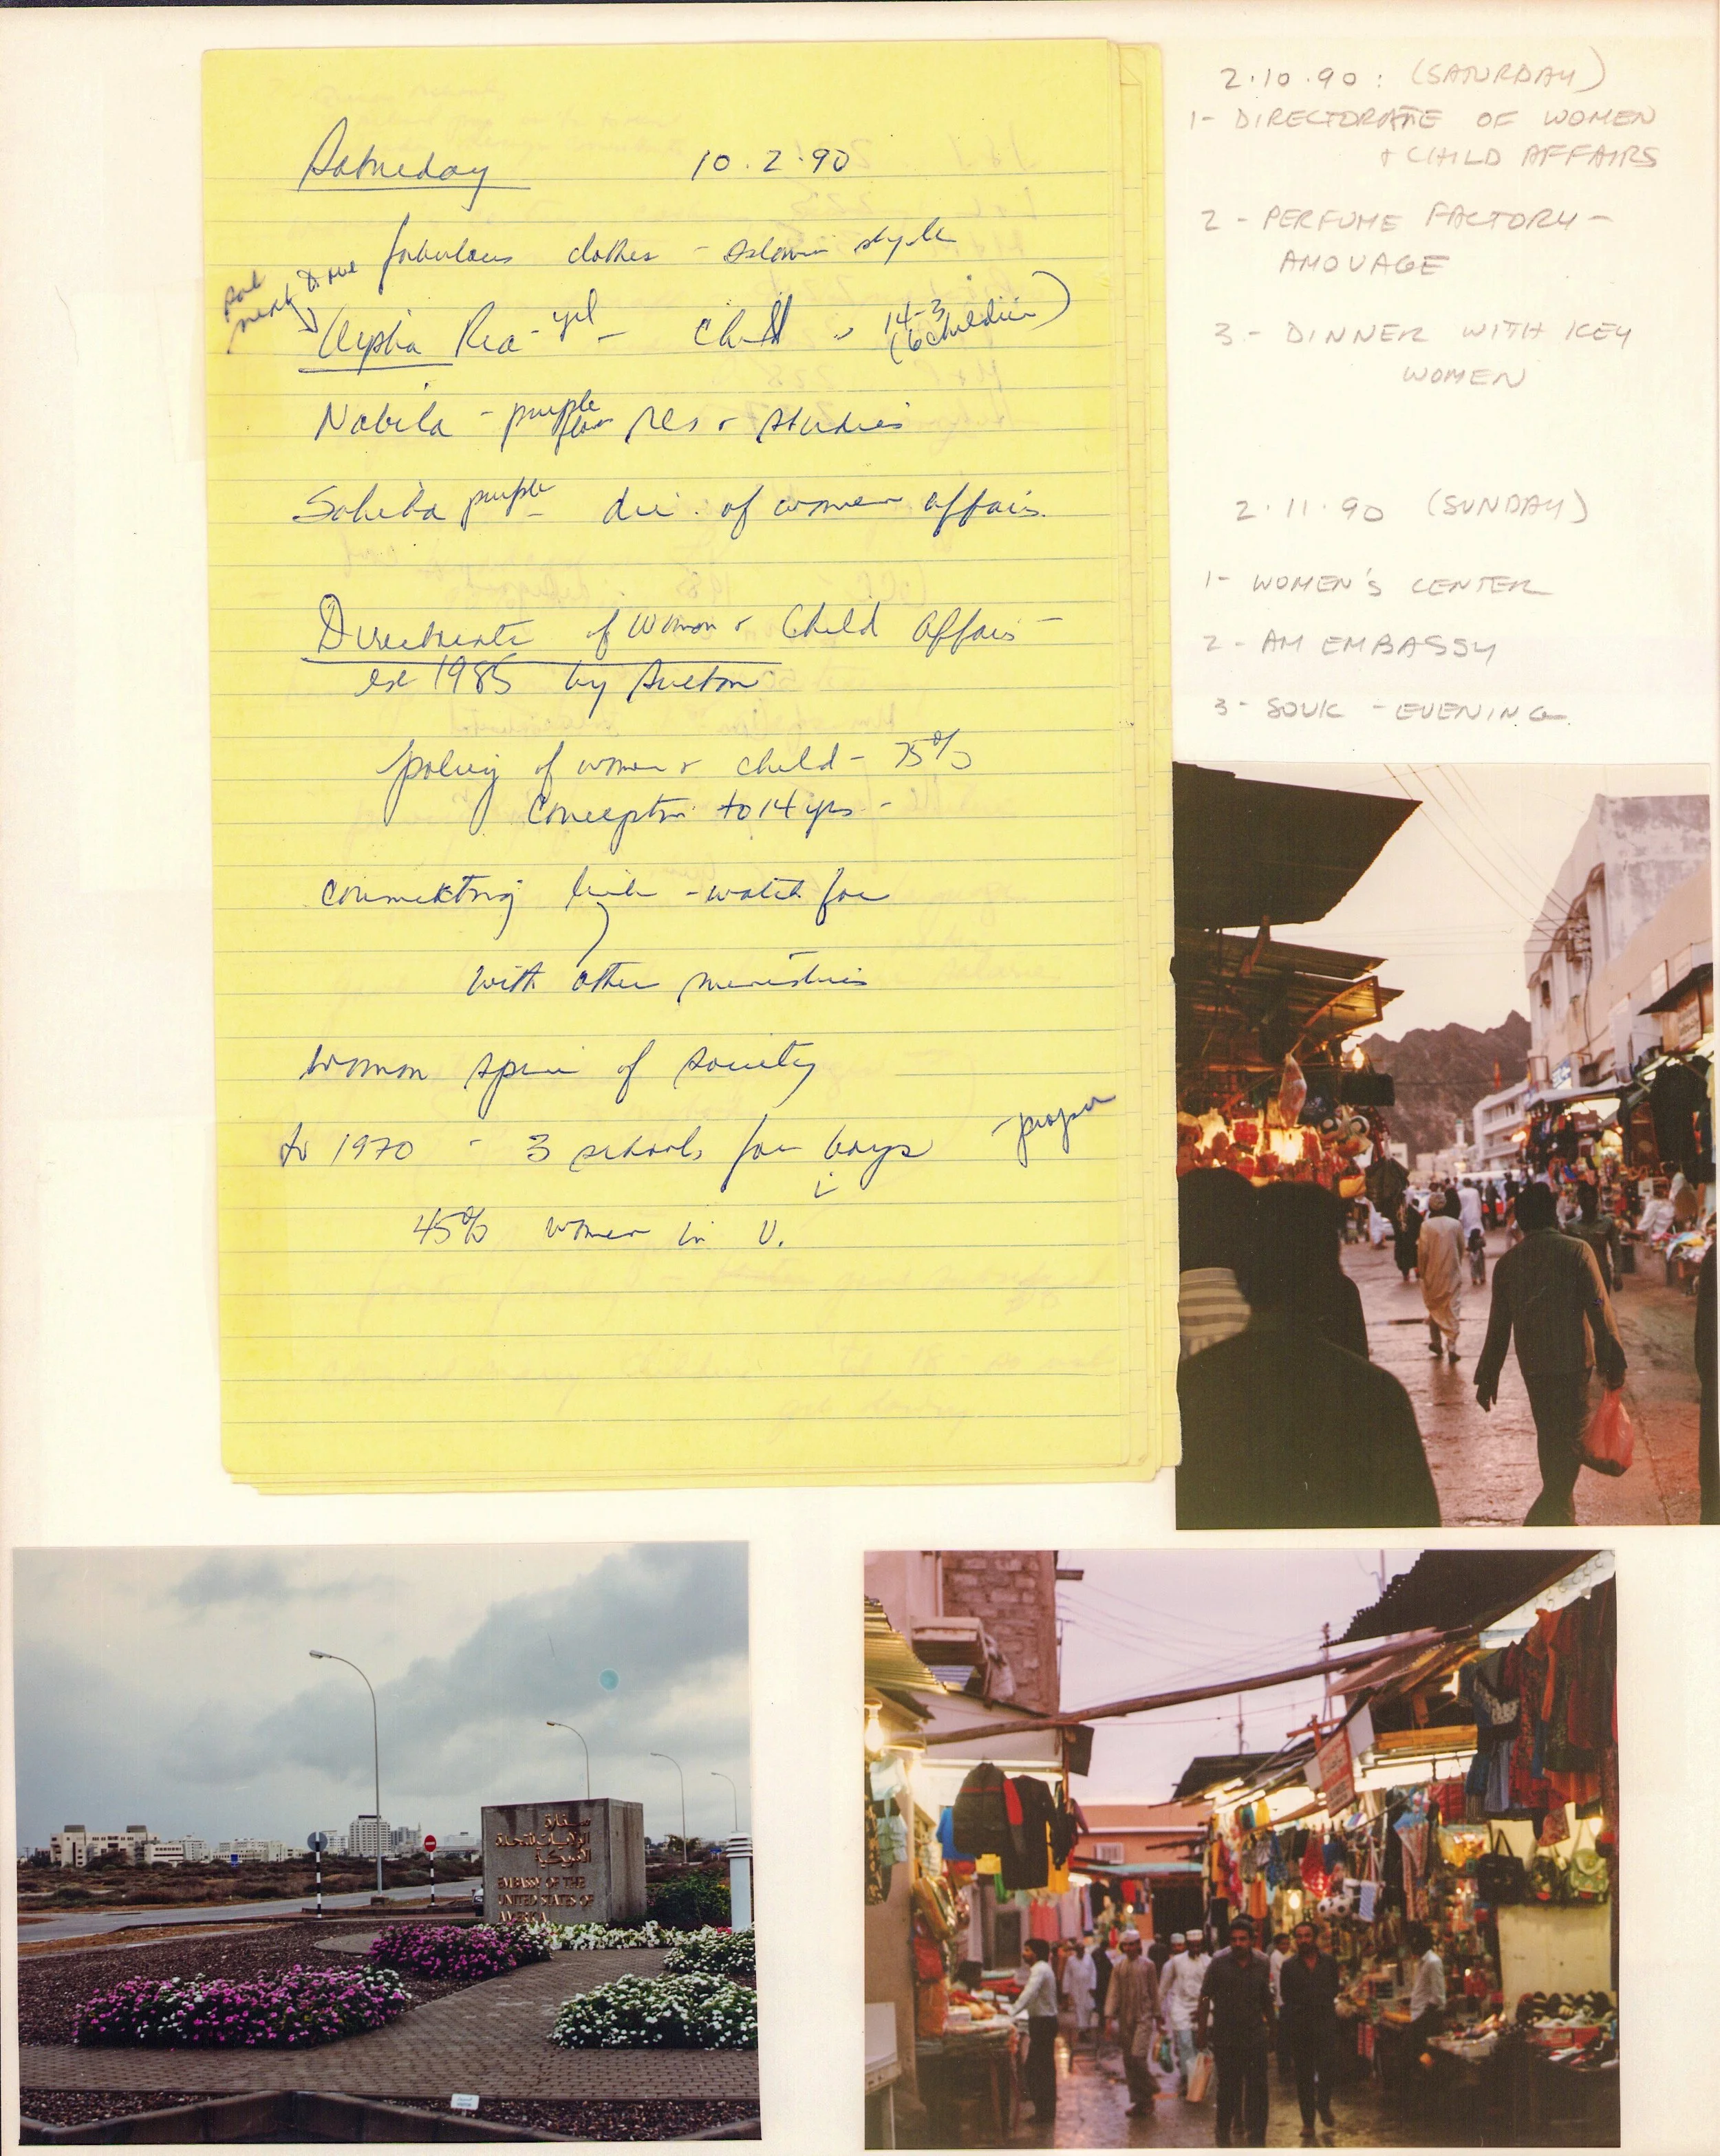 Saturday 10.2.90
fabulous clothes - Islamic style
sat next to me
Aysha Rea - yel - Child " 14-3
(6 children)
Nabila - purple Res & studies
Sahiba purple - dir. of women affairs.
Directorate of Women & Child Affairs -
est 1985 by Sultan
policy of women & child - 75%
Conception to 14 yrs -
connecting link - watch for
with other ministries
women spine of society
to 1970 - 3 schools for boys - proper
45% women in U.
2.10.90: (SATURDAY)
1- DIRECTORATE OF WOMEN
+ CHILD AFFAIRS
2 - PERFUME FACTORY -
AMOUAGE
3 - DINNER WITH KEY
WOMEN
2.11.90 (SUNDAY)
1- WOMEN'S CENTER
2- AM EMBASSY
3- SOUK - EVENING
سفارة
الولايات المتحدة
الأمريكية
EMBASSY OF THE
UNITED STATES OF
AMERICA